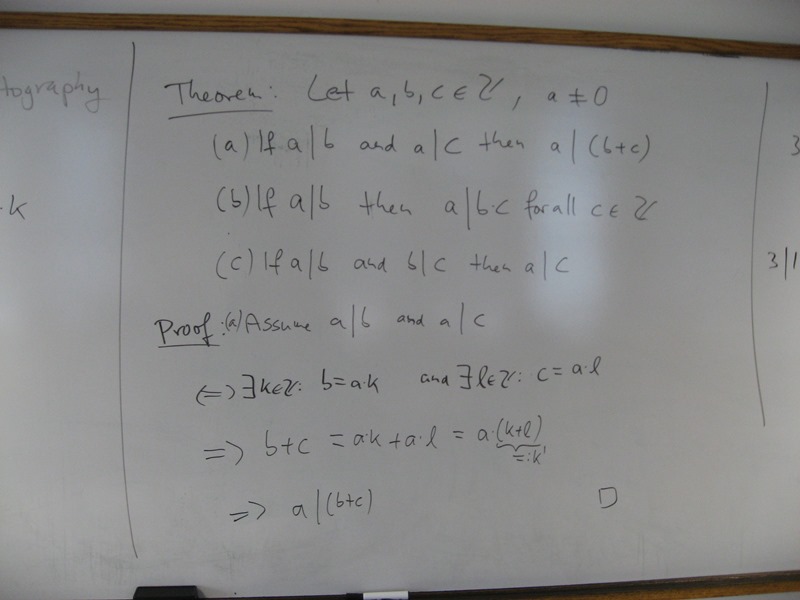 tography
k
Theorem: Let a, b, c ∈ ℤ, a ≠ 0
(a) If a|b and a|c then a|(b+c)
(b) If a|b then a|b·c for all c ∈ ℤ
(c) If a|b and b|c then a|c
Proof: (a) Assume a|b and a|c
⟺ ∃k∈ℤ: b=a·k and ∃l∈ℤ: c=a·l
⟹ b+c = a·k+a·l = a·(k+l)
=:k'
⟹ a|(b+c) □
3
3|1